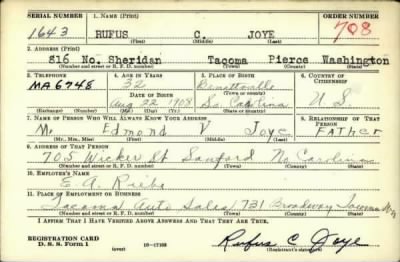 SERIAL NUMBER 1. NAME (Print) ORDER NUMBER
1643 RUFUS C. JOYE 708
(First) (Middle) (Last)
2. ADDRESS (Print)
816 No. Sheridan Tacoma Pierce Washington
(Number and street or R. F. D. number) (Town) (County) (State)
3. TELEPHONE 4. AGE IN YEARS 5. PLACE OF BIRTH 6. COUNTRY OF CITIZENSHIP
MA 6748 32 Bennettsville
DATE OF BIRTH
Aug 22 1908 So. Carolina U.S.
(Exchange) (Number) (Mo.) (Day) (Yr.) (State or country)
7. NAME OF PERSON WHO WILL ALWAYS KNOW YOUR ADDRESS 8. RELATIONSHIP OF THAT PERSON
Mr. Edmond V Joye Father
(Mr., Mrs., Miss) (First) (Middle) (Last)
9. ADDRESS OF THAT PERSON
705 Wicker St Sanford No Carolina
(Number and street or R. F. D. number) (Town) (County) (State)
10. EMPLOYER'S NAME
E. A. Riebe
11. PLACE OF EMPLOYMENT OR BUSINESS
Tacoma Auto Sales 731 Broadway Tacoma Wn
(Number and street or R. F. D. number) (Town) (County) (State)
I AFFIRM THAT I HAVE VERIFIED ABOVE ANSWERS AND THAT THEY ARE TRUE.
REGISTRATION CARD
D. S. S. Form 1 (over) 16—17105 Rufus C. Joye